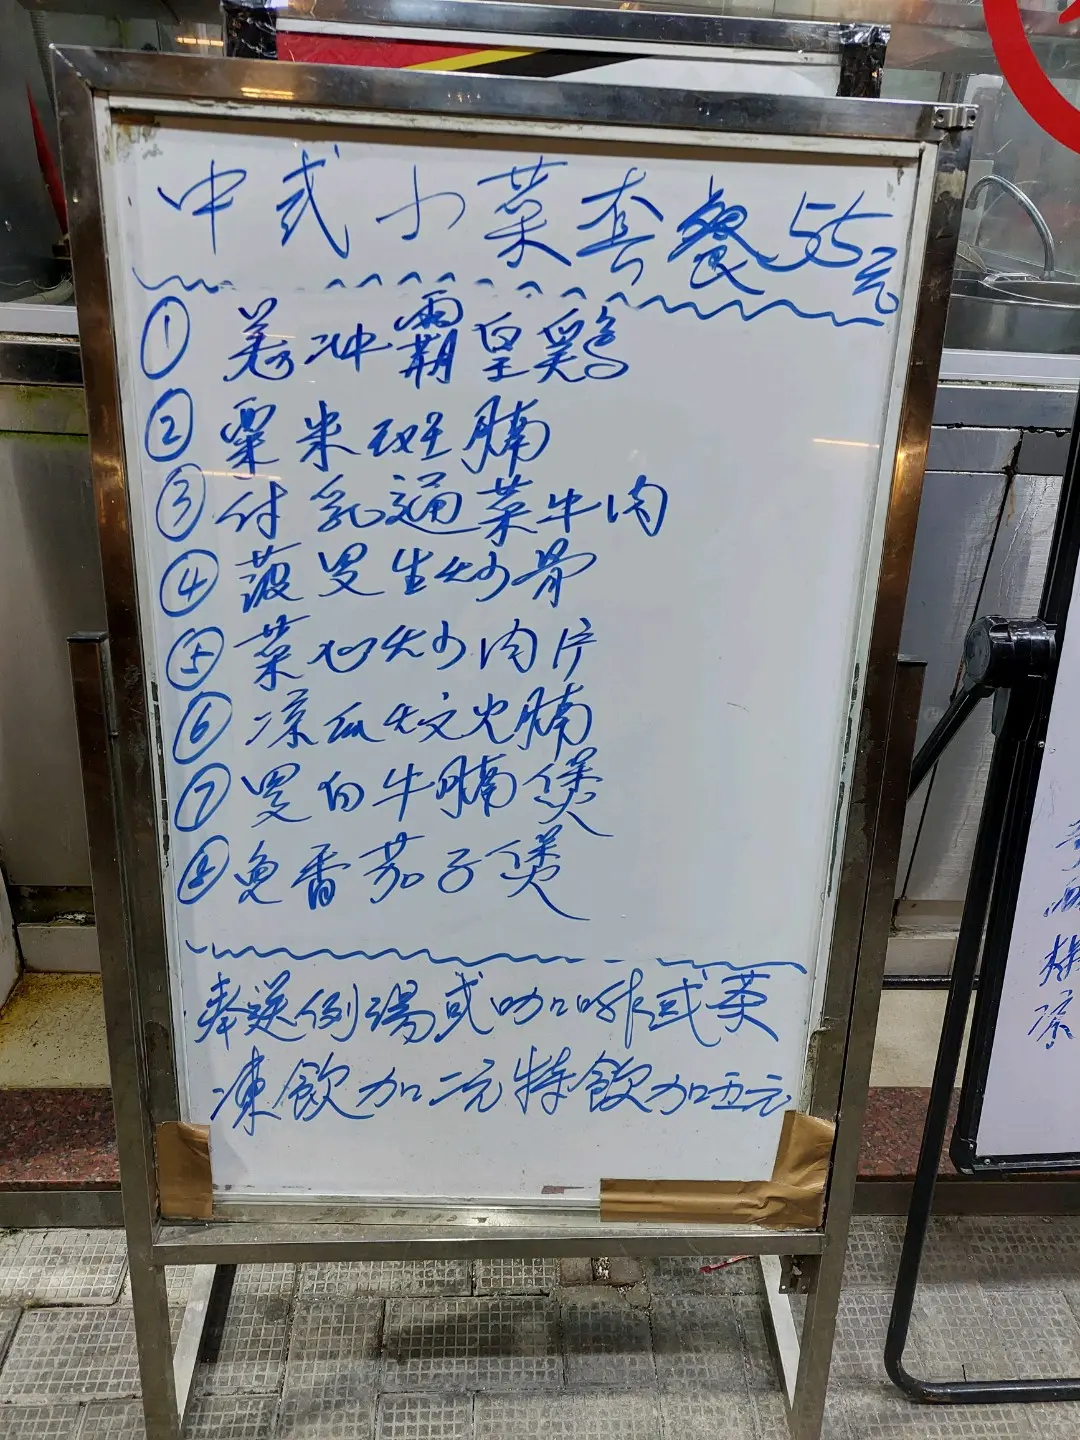 中式小菜套餐55元
① 羗冲霸皇鷄
② 粟米斑腩
③ 付乳通菜牛肉
④ 菠罗生炒骨
⑤ 菜心炒肉片
⑥ 凉瓜炆火腩
⑦ 罗白牛腩煲
⑧ 魚香茄子煲
奉送例湯或咖啡或茶
凍飲加二元特飲加五元